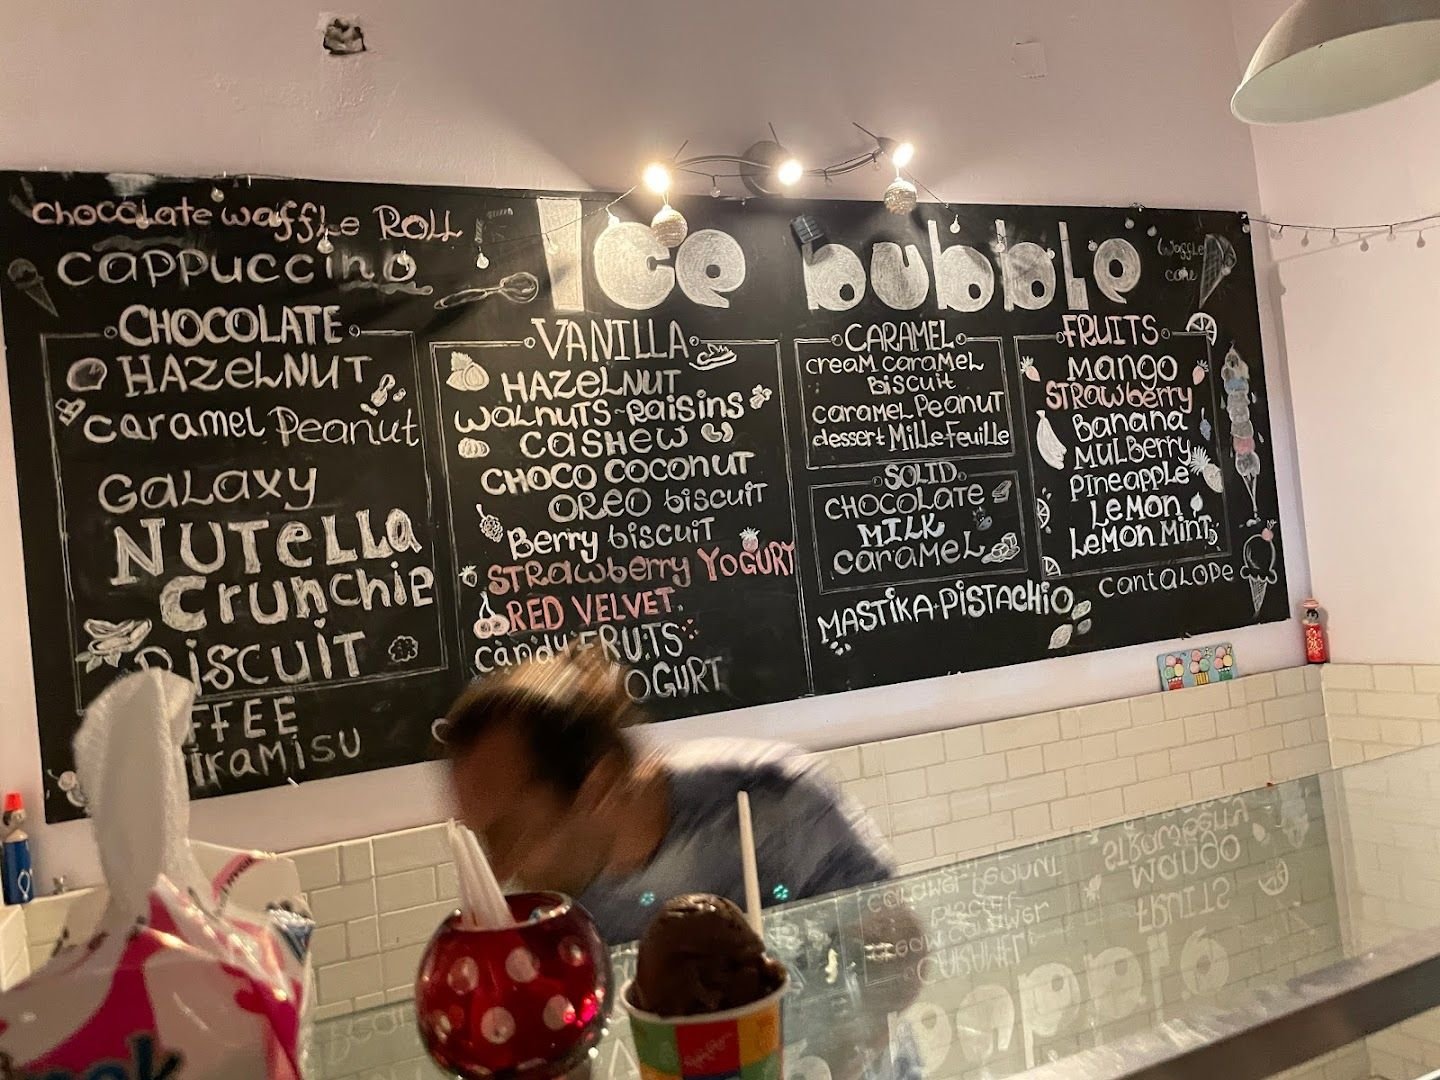 Ice bubble
chocolate waffle Roll
cappuccino
CHOCOLATE
HAZELNUT
caramel Peanut
GALAXY
NUTELLA
Crunchie
BISCUIT
TiRAMiSU
VANILLA
HAZELNUT
WALNUTS-Raisins
CASHEW
CHOCO coconut
OREO biscuit
Berry biscuit
STRAwberry YOGURT
RED VELVET
candy FRUiTS
CARAMEL
cream caramel
Biscuit
caramel Peanut
dessert Millefeuille
SOLID
CHOCOLATE
MILK
caramel
MASTiKA+PiSTACHiO
Waffle
cone
FRUITS
Mango
STRAwberry
Banana
MulBerry
Pineapple
LeMoN
LeMoN MiNT
CantALOPe